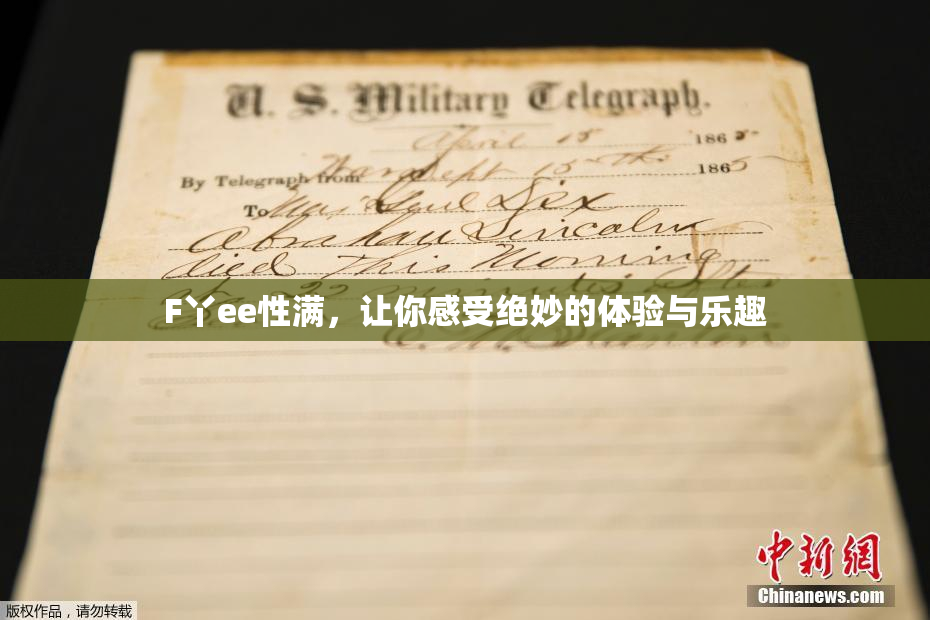 U. S. Military Telegraph.
April 15 1865
By Telegraph from War Dept 15th 1865
To Maj Genl Dix
Abraham Lincoln
died This Morning
at 22 minutes after
F丫ee性满，让你感受绝妙的体验与乐趣
中新网
Chinanews.com
版权作品，请勿转载